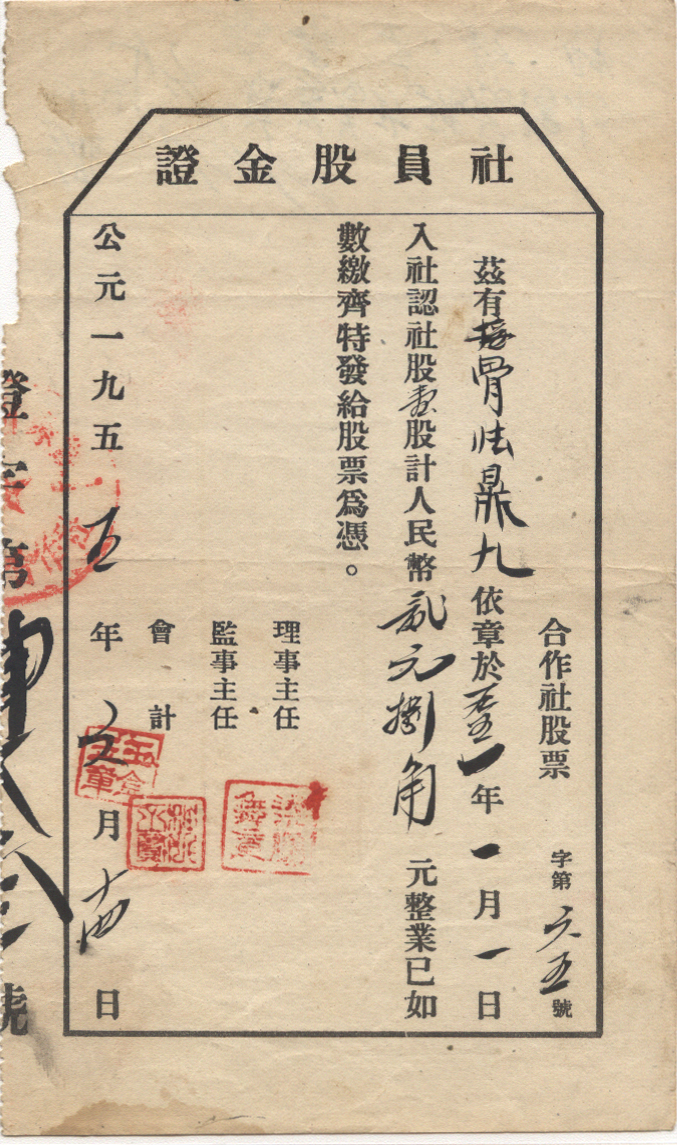 社員股金證
合作社股票 字第六五號
茲有 骨 鼎九依章於 一年一月一日
入社認社股壹股計人民幣貳元捌角元整業已如
數繳齊特發給股票為憑。
理事主任
監事主任
會計
公元一九五五年六月十四日
證字第 號